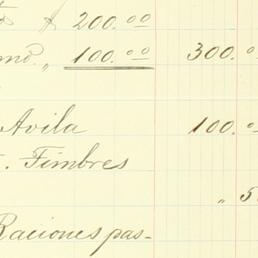 $ 200.00
" 100.00 300.0
Avila 100.0
Timbres
" 5
Raciones pas-